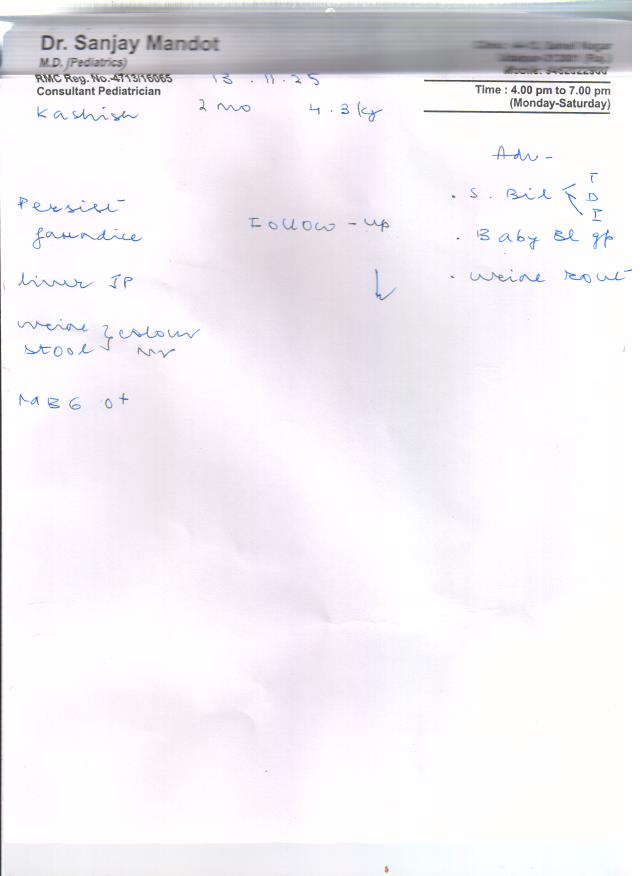 Dr. Sanjay Mandot
M.D. (Pediatrics)
RMC Reg. No.-4713/16065
Consultant Pediatrician
13 . 11 . 25
Time : 4.00 pm to 7.00 pm
(Monday-Saturday)
Kashish 2 mo 4.3 kg
Adv -
Persist
Jaundice
Follow-up
. S. Bil T
D
I
. Baby Bl gp
. Urine rout
liver JP
Urine } colour
stool Nr
MBG O+